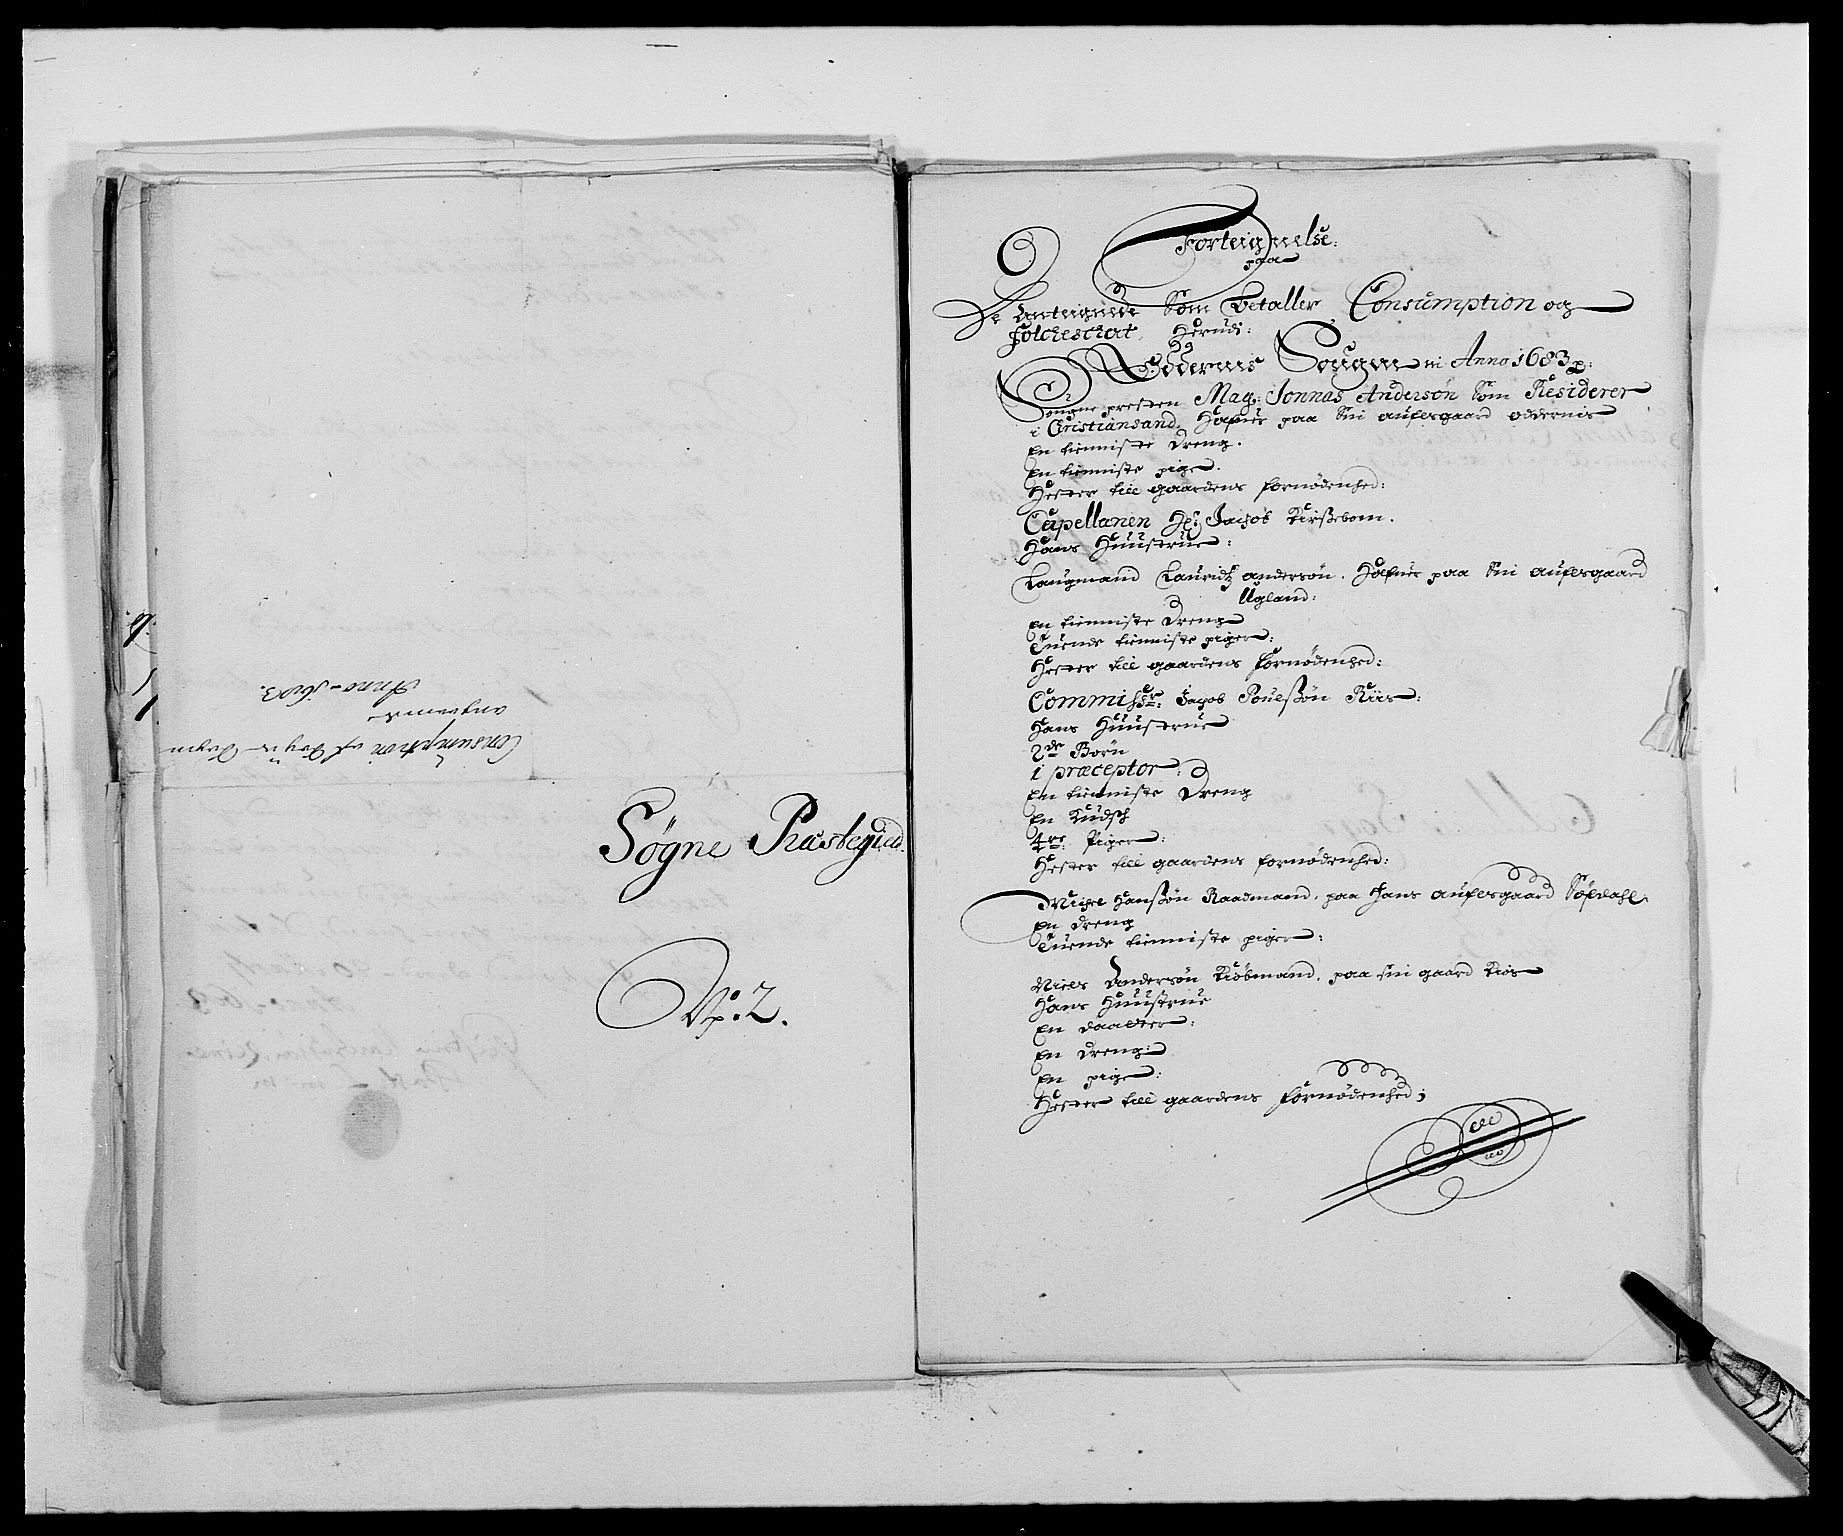 Consumption af Søgne Sogn
angaaende
Anno 1683.
Søgne Præstegield.
No: 2.
Forteignelse:
paa
De Anteignede Som betaller Consumption og
folcheschat, Herudi:
Odernis Sougen ni Anno 1683
Sougne presten Mag: Jonnas Andersøn Som Residerer
i Cristiansand, Hafuer paa Sin aufelsgaard oddernis
En tienniste Dreng.
En tienniste pige.
Hester till gaardens fornødenhed:
Capellanen Hr: Jacob Kirssebom.
Hans Huustrue:
Laugmand Lauridtz andersøn. Hafuer paa Sin aufelsgaard
Ugland:
En tienniste Dreng
Tuende tienniste piger:
Hester till gaardens fornødenhed:
Commissr: Jacob Pouelssøn Riis:
Hans Huustrue
2de Børn
1 præceptor:
En tienniste Dreng
En Kudsch
4re: Piger:
Hester till gaardens fornødenhed:
Michel Hanssøn Raadmand, paa Hans aufelsgaard Søfdahl
En dreng
Tuende tienniste piger:
Niels Andersøn Kiøbmand, paa sin gaard Kios
Hans Huustrue
En daatter:
En dreng:
En pige:
Hester till gaardens fornødenhed;